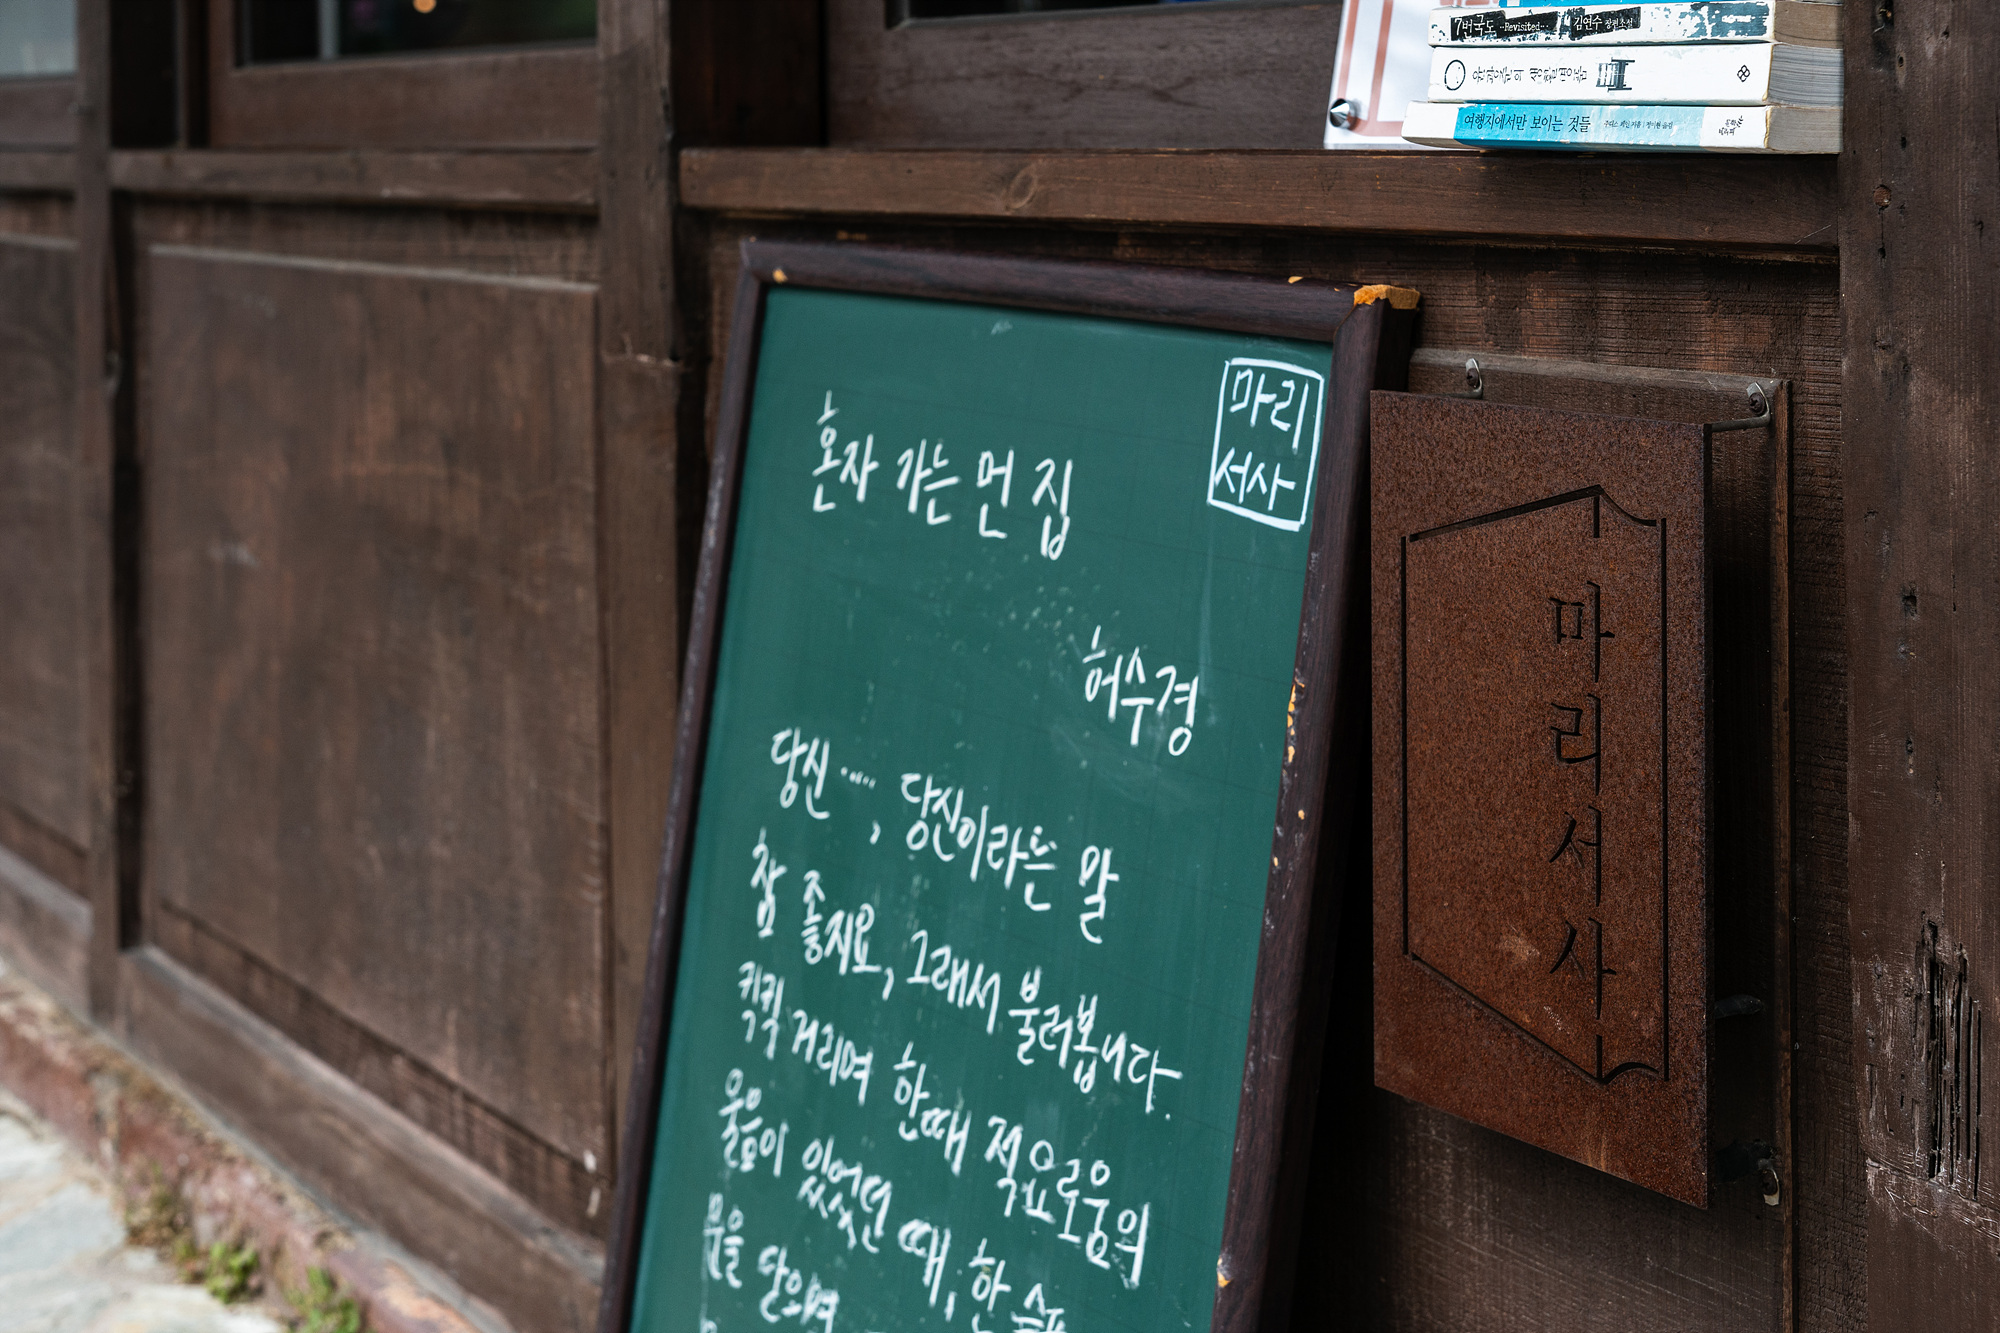 7번국도 Revisited 김연수 장편소설
여행지에서만 보이는 것들
마리
서사
혼자 가는 먼 집
허수경
당신……, 당신이라는 말
참 좋지요, 그래서 불러봅니다.
킥킥 거리며 한때 적요로움의
울음이 있었던 때, 한 슬픔
문을 닫으며
마리서사